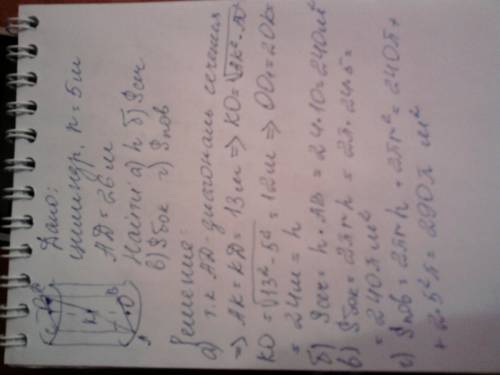 Дано:
цилиндр, r = 5 м
AD = 26 м
Найти а) h б) Sсеч
в) Sбок г) Sпов
Решение:
а) т.к AD - диагональ сечения
=> AK = KD = 13 м => KO =
KO = √13² - 5² = 12 м => OO₁ = 2OK
= 24 м = h
б) Sсеч = h · AB = 24 · 10 = 240 м²
в) Sбок = 2πrh = 2π · 24 · 5 =
= 240π м²
г) Sпов = 2πrh + 2πr² = 240π +
+ 2 · 5²π = 290π м²